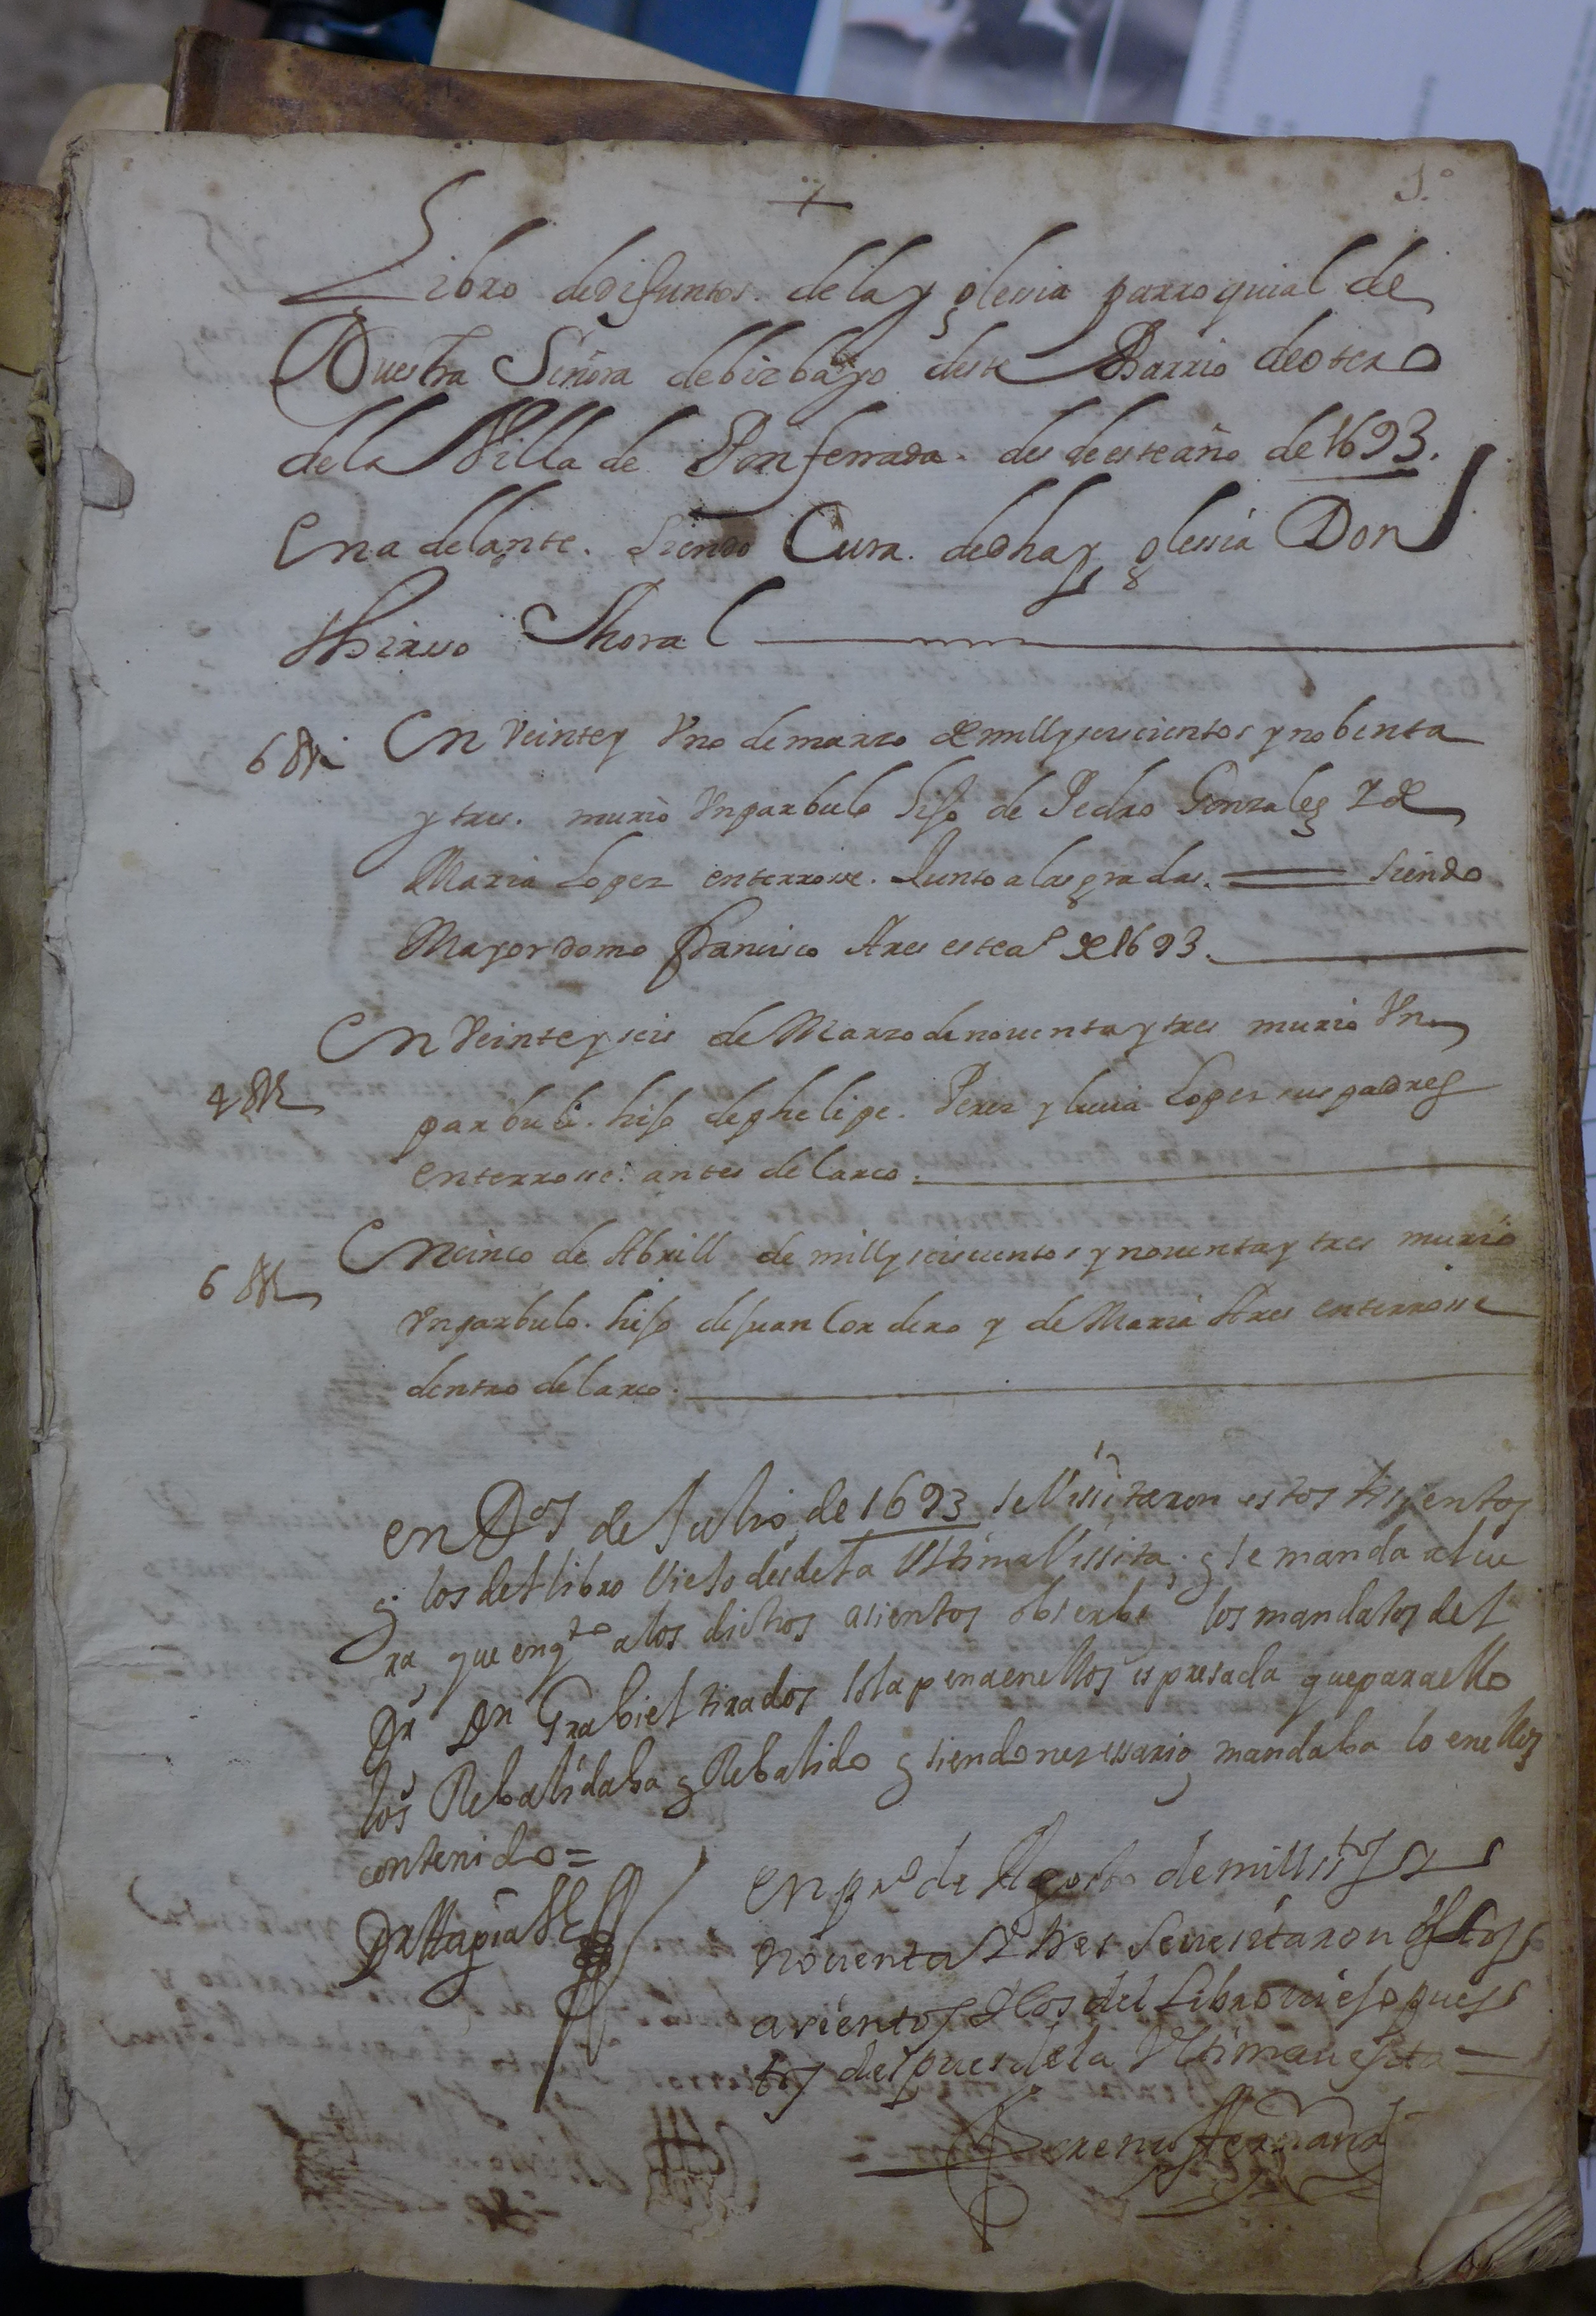 1.º
Libro dedifuntos. dela yglesia parroquial de
Nuestra Señora debizbayo deste Barrio deotero
dela Villa de Ponferrada. desdeesteaño de 1693.
En adelante. siendo Cura. dedha yglessia Don
Thirsso Thoral
6 Rs En Veintey Vno demarzo de millyseiscientos ynobenta
ytres. murio Vnparbulo hijo de Pedro Gonzales y de
Maria Lopez enterrosse. Junto alasgradas. = siendo
Mayordomo Francisco Ares estea.º de 1693.
En Veinteyseis de Marzo denouentaytres murio Vn
4 Rs parbulo. hijo dephelipe. Perez ylucia Lopez suspadres
enterrosse. antes delarco.
En cinco de Abrill de millyseiscientos ynouentaytres murio
6 Rs Vnparbulo. hijo deJuan Cordero y de Maria Ares enterrosse
dentro delarco.
en Dos de Julio de 1693 seVissitaron estos Asientos
y los dellibro Viejo desdela VltimaVissita; yse manda alcu
ra que enqto alos dichos asientos obserbe los mandatos del
Dr Dn Grabiel tirados sola penaenellos espresada queparaello
los Rebalidaba yRebalido ysiendonezessario mandaba lo enellos
contenido =
Dr Tapia
En pro de Agosto demillsstos y
nouenta y tres seuesitaron estos
asientos ylos del Libro uiejo pues
tos despues dela Vltimauesita =
Lorenzo Hernandz